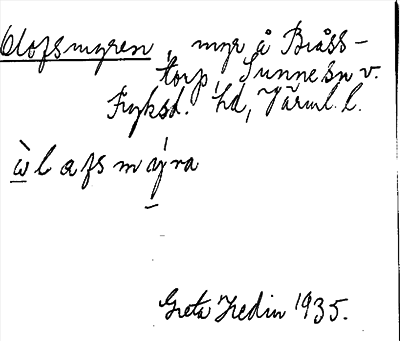 Olofsmyren, myr å Bråss-
torp, Sunne sn v.
Fryksd. hd, Värml. l.
ẁlafsmýra
Greta Hedin 1935.